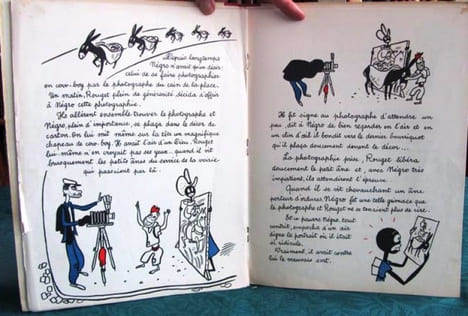 Depuis longtemps
Négro n'avait qu'un désir :
celui de se faire photographier
en cow-boy par le photographe du coin de la place.
Un matin, Rouget plein de générosité décida d'offrir
à Négro cette photographie.
Ils allèrent ensemble trouver le photographe et
Négro, plein d'importance, se plaça dans le décor de
carton. On lui mit même sur la tête un magnifique
chapeau de cow-boy. Il avait l'air d'un héros. Rouget
lui-même n'en croyait pas ses yeux, quand il vit
brusquement les petits ânes du service de la voirie
qui passaient par là.
Il fit signe au photographe d'attendre un
peu, dit à Négro de bien regarder en l'air et en
un clin d'œil il bondit vers le dernier bourriquet
qu'il plaça doucement devant le décor...
La photographie prise, Rouget libéra
doucement le petit âne et, avec Négro très
impatient, ils attendirent l'épreuve.
Quand il se vit chevauchant un âne
porteur d'ordures, Négro fit une telle grimace que
le photographe et Rouget ne se tenaient plus de rire.
Le pauvre Négro, tout
contrit, emporta d'un air
digne le portrait où il était
si ridicule.
Vraiment, il avait contre
lui le mauvais sort.